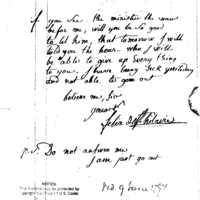 if you see the minister the war
before me, will you be so good
to let him, that tomorrow I will
told you the hour who I will
be able to give up every thing
to you I have being sick yesterday
and not able to gone out
believe me, Sir
yours
felix de St
p.s. Do not answer me
I am just go out
NOTICE
This material may be protected by
copyright law (Title 17 U.S. Code)